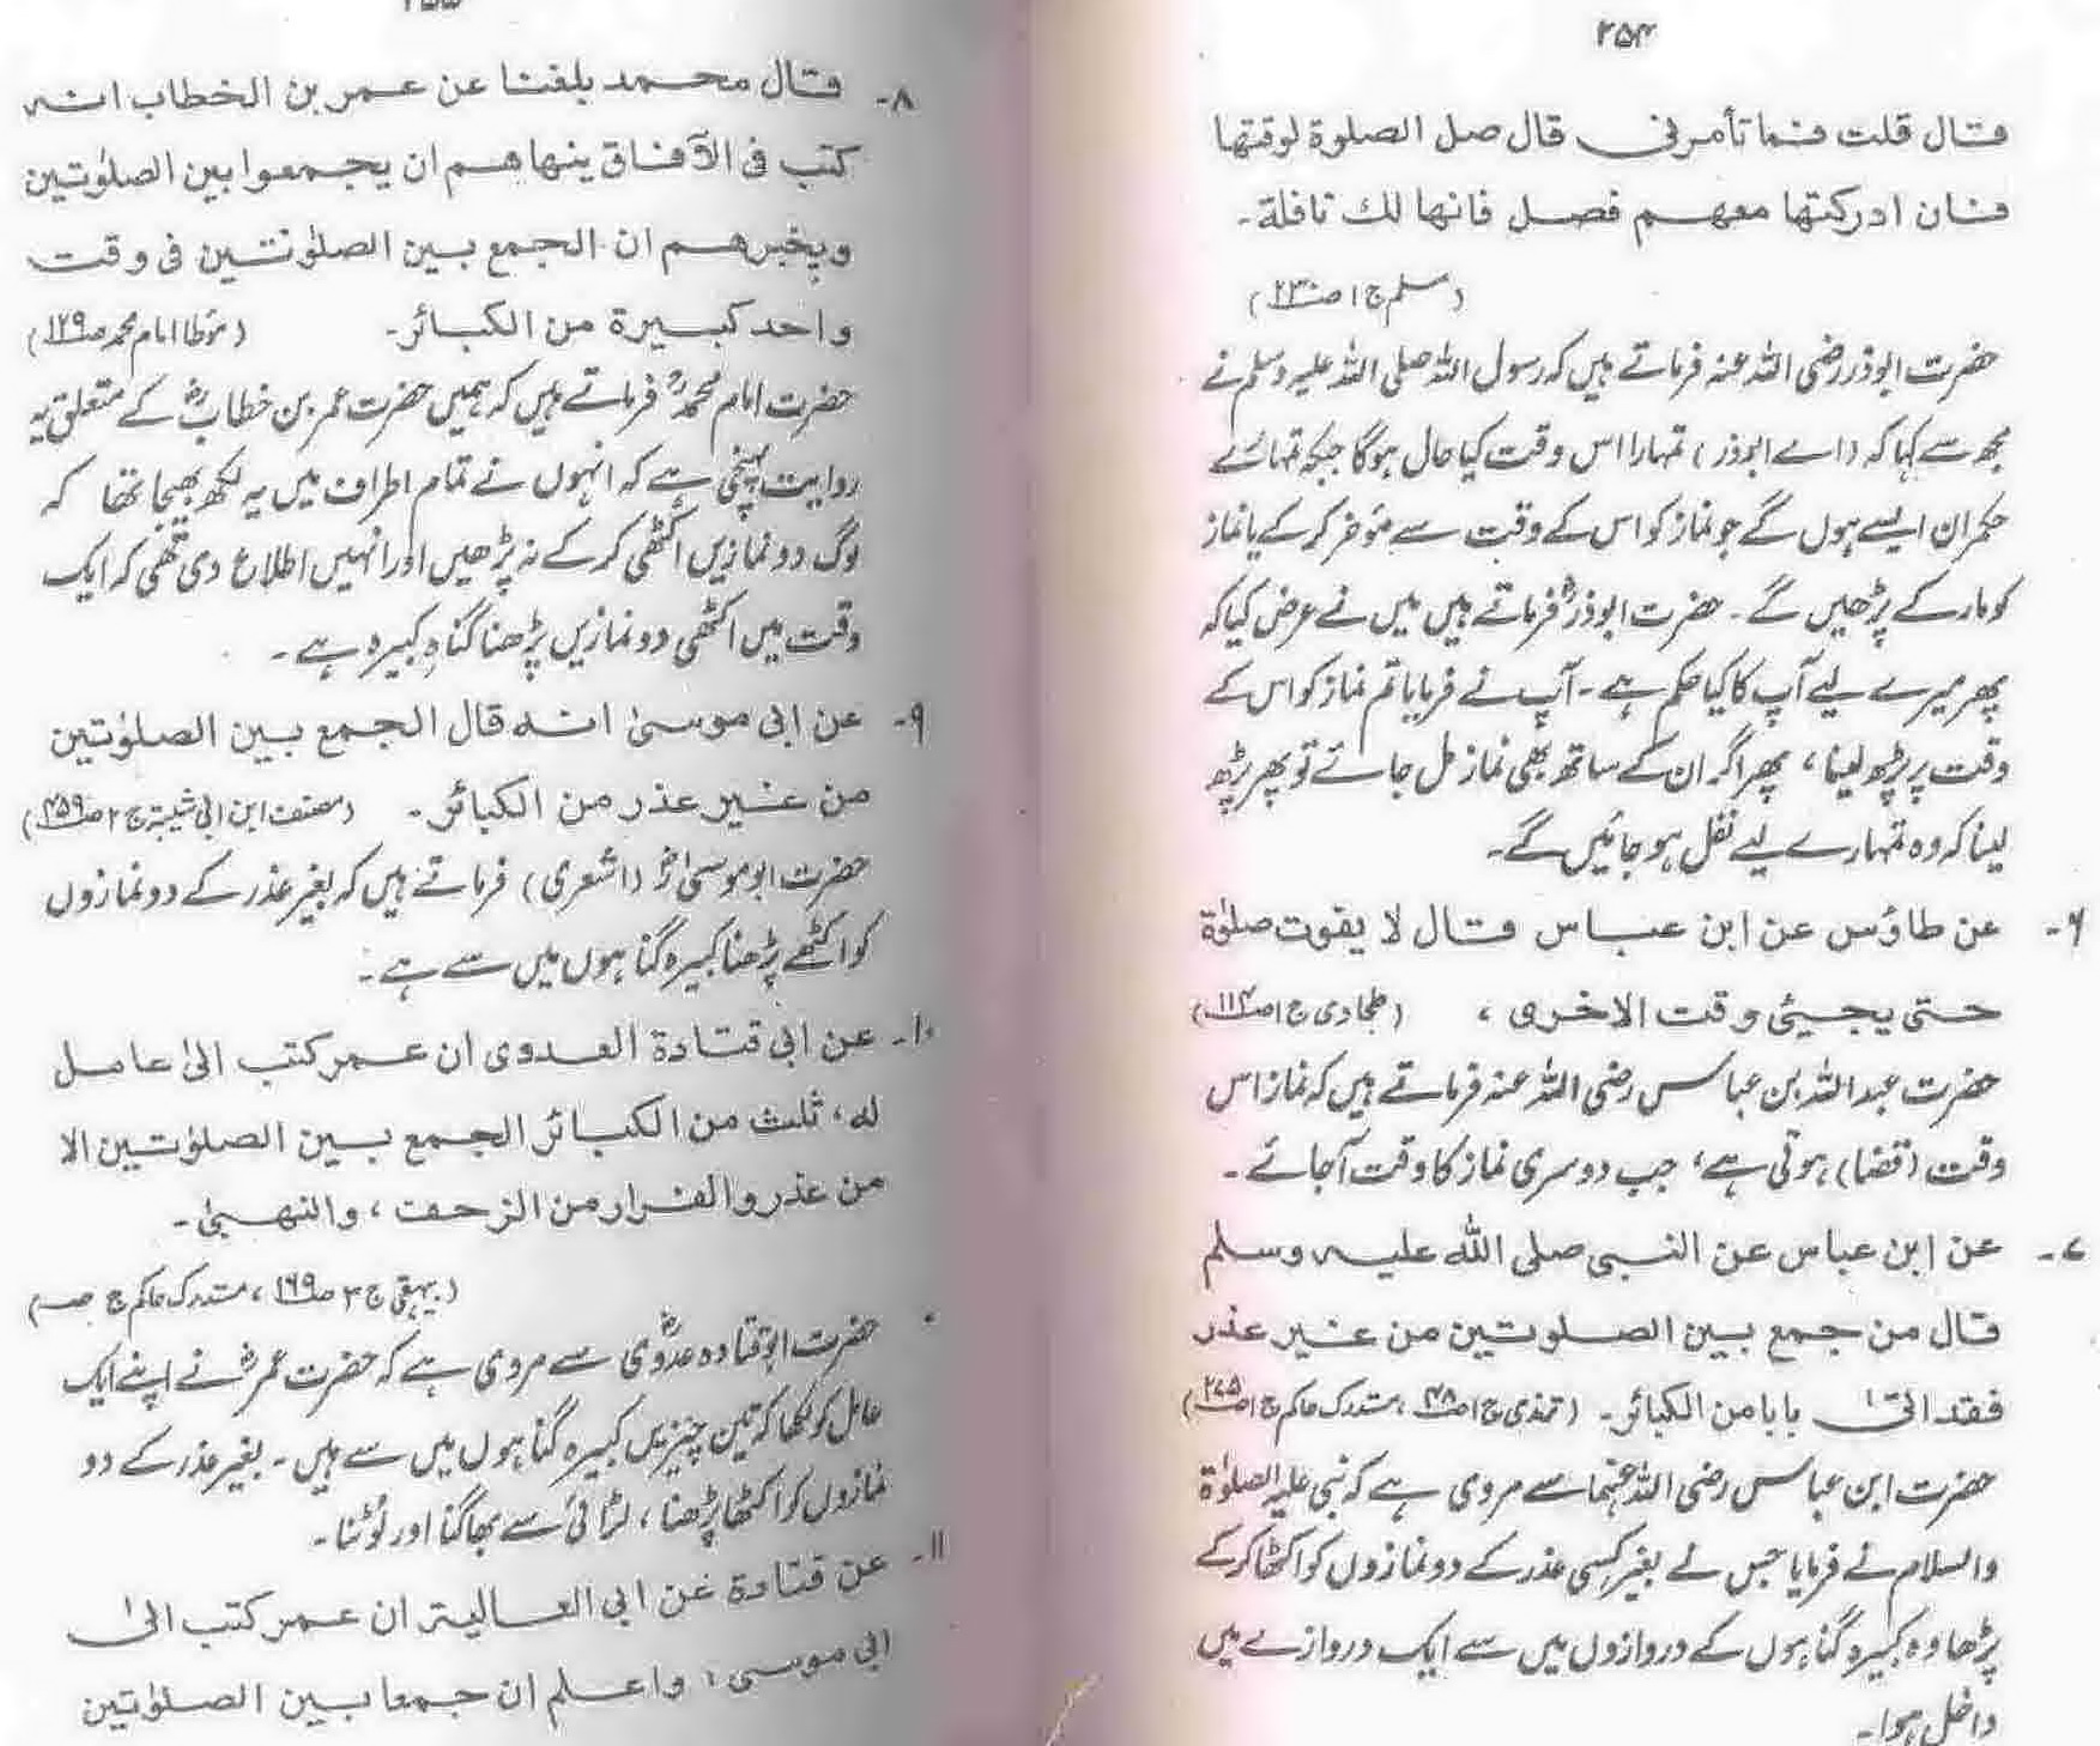 ۲۵۴
قال قلت فما تأمرنی قال صل الصلوة لوقتها
فان ادرکتها معهم فصل فانها لك نافلة۔
(مسلم ج ۱ ص ۲۳۰)
حضرت ابوذر رضی اللہ عنہ فرماتے ہیں کہ رسول اللہ صلی اللہ علیہ وسلم نے
مجھ سے کہا کہ (اے ابوذر) تمہارا اس وقت کیا حال ہوگا جبکہ تمہارے
حکمران ایسے ہوں گے جو نماز کو اس کے وقت سے مؤخر کر کے یا نماز
کو مار کے پڑھیں گے۔ حضرت ابوذرؓ فرماتے ہیں میں نے عرض کیا کہ
پھر میرے لیے آپ کا کیا حکم ہے۔ آپ نے فرمایا تم نماز کو اس کے
وقت پر پڑھ لینا، پھر اگر ان کے ساتھ بھی نماز مل جائے تو پھر پڑھ
لینا کہ وہ تمہارے لیے نفل ہو جائیں گے۔
۶۔ عن طاؤس عن ابن عباس قال لا یفوت صلوٰة
حتی یجیئی وقت الاخری، (طحاوی ج ۱ ص ۱۱۴)
حضرت عبداللہ بن عباس رضی اللہ عنہ فرماتے ہیں کہ نماز اس
وقت (قضا) ہوتی ہے، جب دوسری نماز کا وقت آجائے۔
۷۔ عن ابن عباس عن النبی صلی اللہ علیہ وسلم
قال من جمع بین الصلوتین من غیر عذر
فقد اتیٰ بابا من الکبائر۔ (ترمذی ج ۱ ص ۴۸، مستدرک حاکم ج ۱ ص ۲۷۵)
حضرت ابن عباس رضی اللہ عنہما سے مروی ہے کہ نبی علیہ الصلوٰة
والسلام نے فرمایا جس نے بغیر کسی عذر کے دو نمازوں کو اکٹھا کر کے
پڑھا وہ کبیرہ گناہوں کے دروازوں میں سے ایک دروازے میں
داخل ہوا۔
۲۵۵
۸۔ قال محمد بلغنا عن عمر بن الخطاب انہ
کتب فی الآفاق ینهاهم ان یجمعوا بین الصلوٰتین
ویخبرهم ان الجمع بین الصلوٰتین فی وقت
واحد کبیرة من الکبائر۔ (مؤطا امام محمد ص ۱۲۹)
حضرت امام محمدؒ فرماتے ہیں کہ ہمیں حضرت عمر بن خطابؓ کے متعلق یہ
روایت پہنچی ہے کہ انہوں نے تمام اطراف میں یہ لکھ بھیجا تھا کہ
لوگ دو نمازیں اکٹھی کر کے نہ پڑھیں اور انہیں اطلاع دی تھی کہ ایک
وقت میں اکٹھی دو نمازیں پڑھنا گناہِ کبیرہ ہے۔
۹۔ عن ابی موسیٰ انہ قال الجمع بین الصلوٰتین
من غیر عذر من الکبائر۔ (مصنف ابن ابی شیبۃ ج ۲ ص ۴۵۹)
حضرت ابو موسیٰؓ (اشعری) فرماتے ہیں کہ بغیر عذر کے دو نمازوں
کو اکٹھے پڑھنا کبیرہ گناہوں میں سے ہے۔
۱۰۔ عن ابی قتادة العدوی ان عمر کتب الیٰ عامل
له، ثلث من الکبائر الجمع بین الصلوٰتین الا
من عذر والفرار من الزحف، والنهبیٰ۔
(بیہقی ج ۳ ص ۱۶۹، مستدرک حاکم ج ص)
حضرت ابو قتادہ عدویؓ سے مروی ہے کہ حضرت عمرؓ نے اپنے ایک
عامل کو لکھا کہ تین چیزیں کبیرہ گناہوں میں سے ہیں۔ بغیر عذر کے دو
نمازوں کو اکٹھا پڑھنا، لڑائی سے بھاگنا اور لُوٹنا۔
۱۱۔ عن قتادة عن ابی العالیة ان عمر کتب الیٰ
ابی موسی، واعلم ان جمعا بین الصلوٰتین